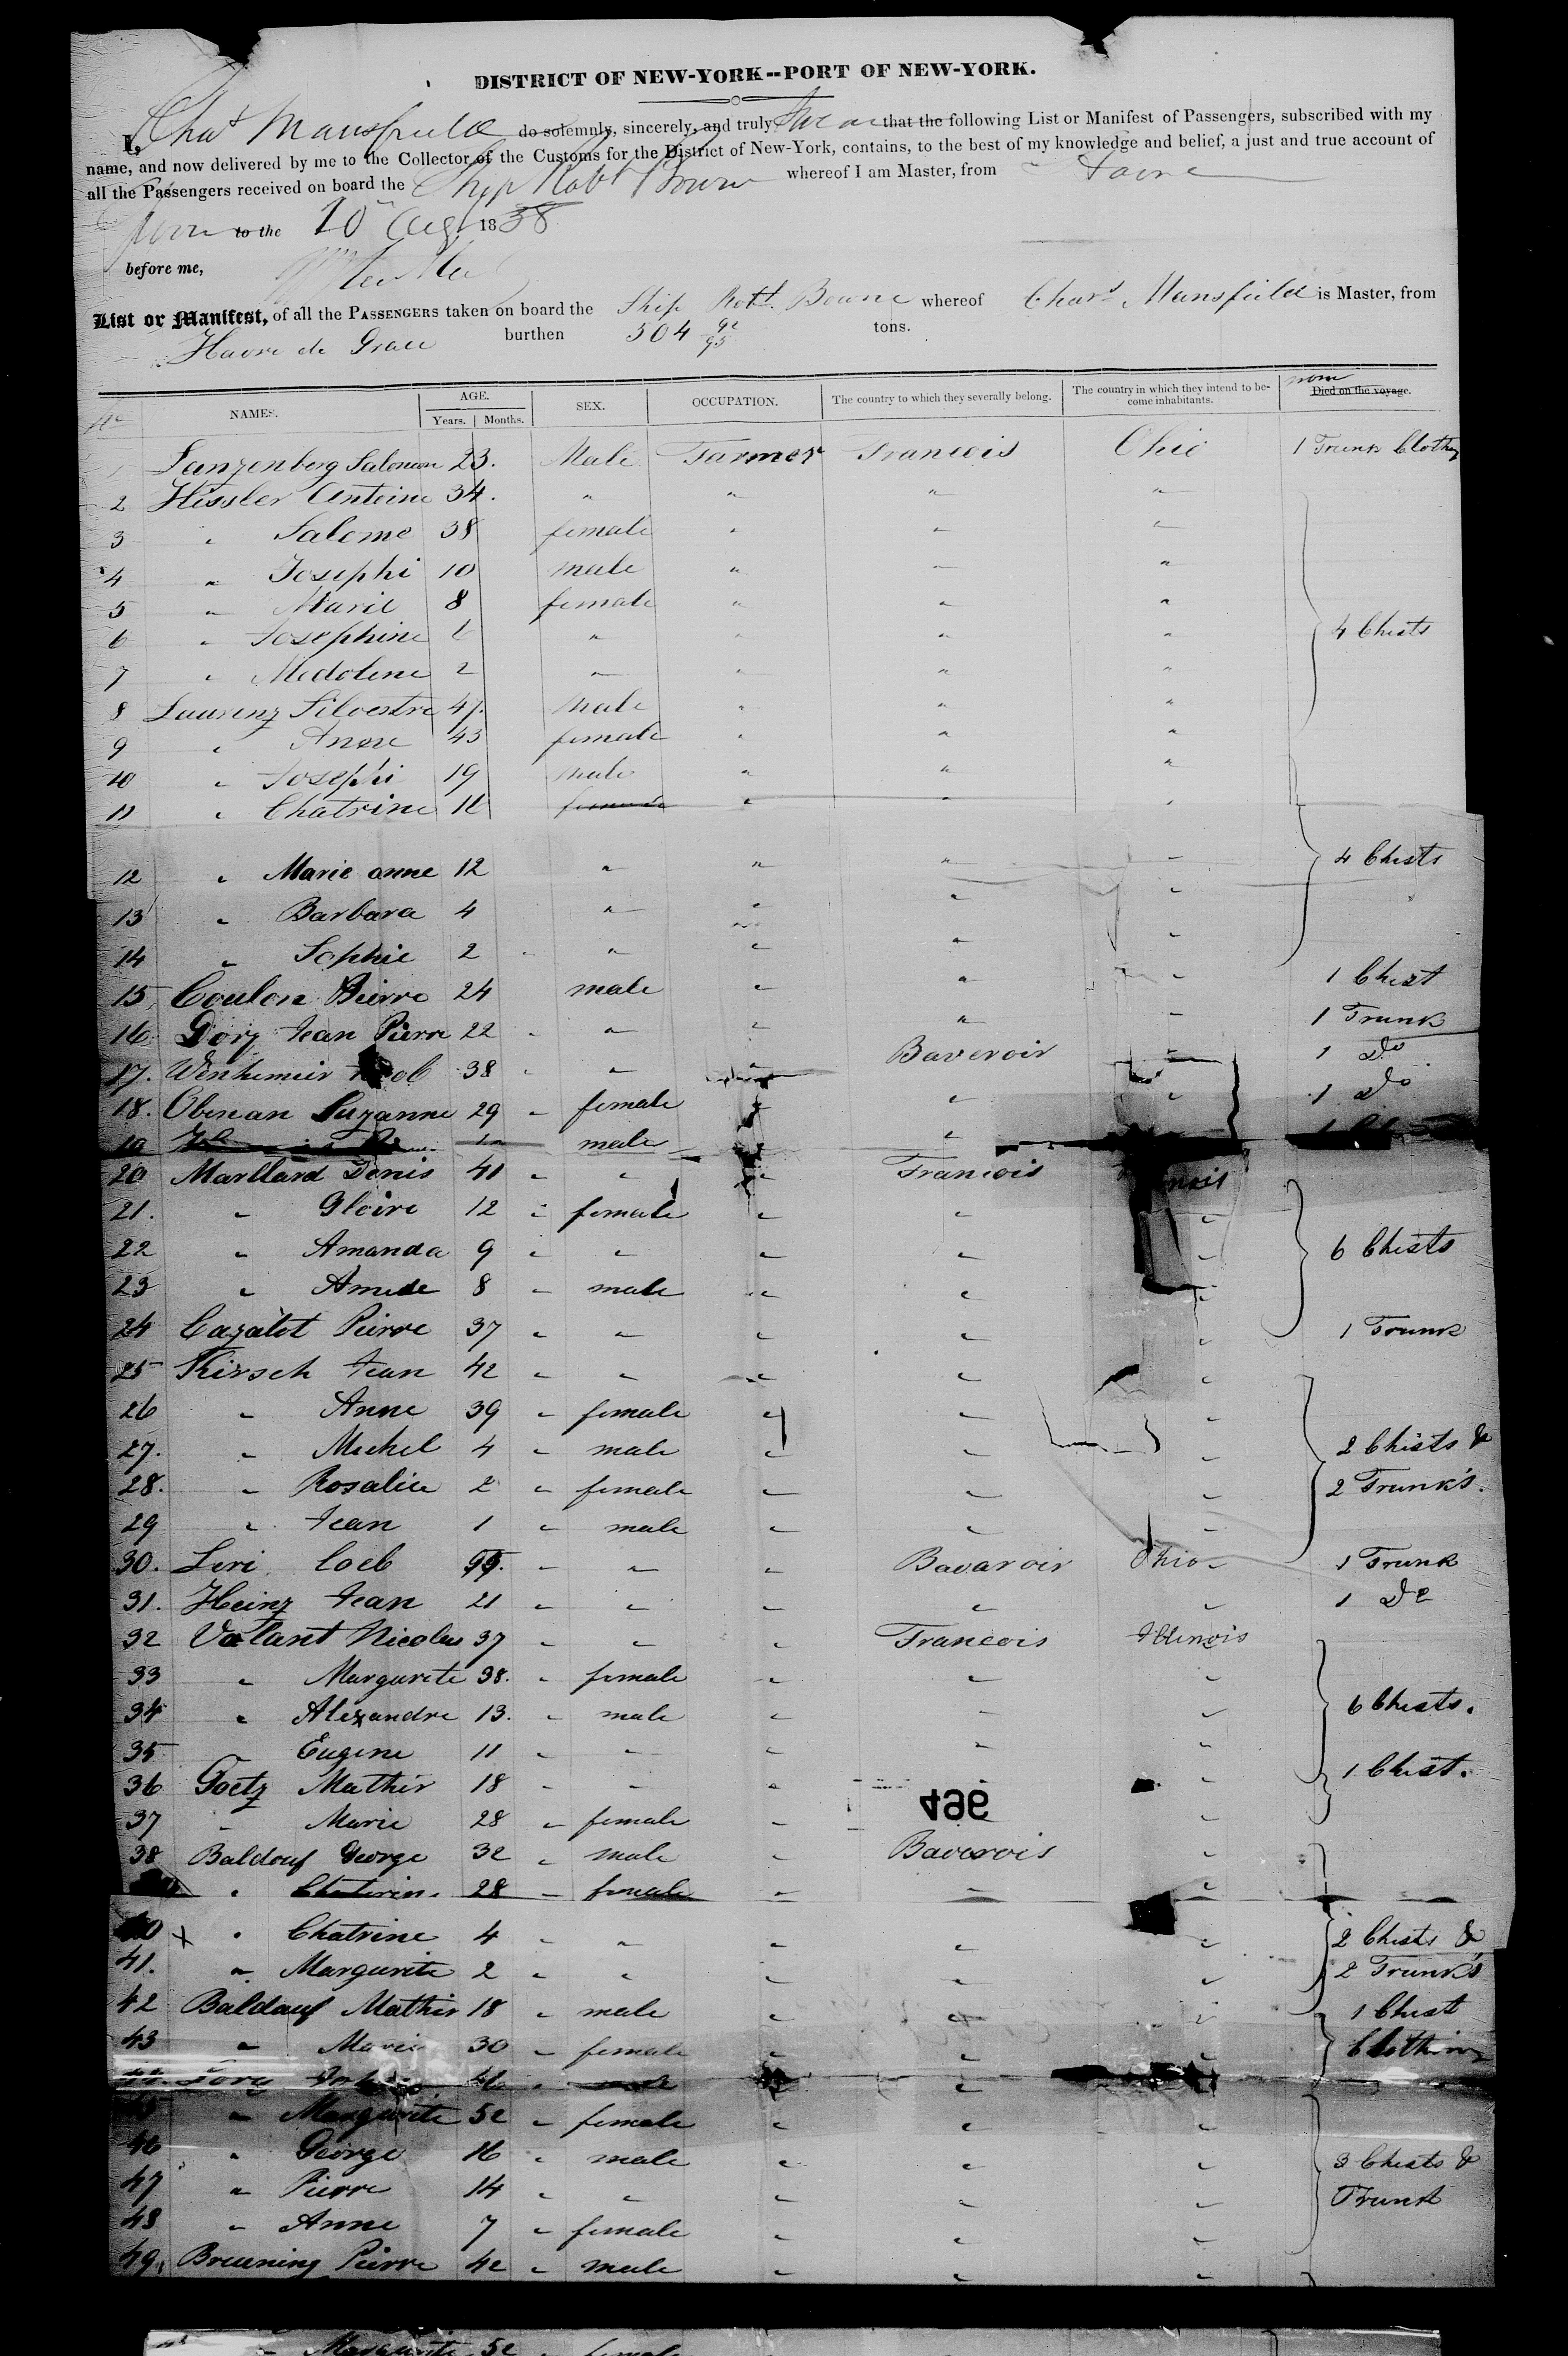 DISTRICT OF NEW-YORK--PORT OF NEW-YORK.
I, Chas Mansfield do solemnly, sincerely, and truly swear that the following List or Manifest of Passengers, subscribed with my
name, and now delivered by me to the Collector of the Customs for the District of New-York, contains, to the best of my knowledge and belief, a just and true account of
all the Passengers received on board the Ship Robt Bowne whereof I am Master, from Havre
Sworn to the 20 Aug 1838
before me,
List or Manifest, of all the PASSENGERS taken on board the Ship Robt. Bowne whereof Chars Mansfield is Master, from
Havre de Grace burthen 504 92/95 tons.
No NAMES. AGE. Years. Months. SEX. OCCUPATION. The country to which they severally belong. The country in which they intend to become inhabitants. Died on the voyage. none
Lanzenberg Salomon 23. Male Farmer Francois Ohio 1 Trunk Clothing
2 Hissler Antoine 34. " " " "
3 " Salome 38 female " " "
4 " Josephi 10 male " " "
5 " Marie 8 female " " "
6 " Josephine 6 " " " " 4 Chests
7 " Medolene 2 " " " "
8 Laurenz Silvestre 47. Male " " "
9 " Anne 43 female " " "
10 " Josephi 19 male " " "
11 " Chatrine 16 female " " "
12 " Marie anne 12 " " " " 4 Chests
13 " Barbara 4 " " " "
14 " Sophie 2 " " " "
15 Coulon Pierre 24 male " " " 1 Chest
16 Dorz Jean Pierre 22 " " " " 1 Trunk
17. 38 " " Baveroir " 1 Do
18. Obenan Suzanne 29 " female " " " 1 Do
19 male "
20 Marllard Denis 41 " " " Francois
21. " Gloire 12 " female " " "
22 " Amanda 9 " " " " " 6 Chests
23 " Amede 8 " male " " "
24 Cazalot Pierre 37 " " " " " 1 Trunk
25 Kirsch Jean 42 " " " " "
26 " Anne 39 " female " " "
27. " Michel 4 " male " " " 2 Chists &
28. " Rosalie 2 " female " " " 2 Trunk's.
29 " Jean 1 " male " " "
30. Levi Loeb 55. " " " Bavaroir Ohio 1 Trunk
31. Heinz Jean 21 " " " " " 1 Do
32 Valant Nicolas 37 " " " Francois Illinois
33 " Margurete 38. " female " " "
34 " Alexandre 13. " male " " " 6 Chests.
35 " Eugene 11 " " " " "
36 Goetz Mathir 18 " " " " " 1 Chest.
496
37 " Marie 28 " female " " "
38 Baldouf George 32 " male " Baverois "
" Chaterine 28 " female " " "
40 x " Chatrine 4 " " " " " 2 Chests &
41. " Margurite 2 " " " " " 2 Trunk's
42 Baldauf Mathir 18 " male " " " 1 Chest
43 " Marie 30 " female " " " Clothing
44.
45 " Margurite 52 " female " " "
46 " George 16 " male " " " 3 Chests &
47 " Pierre 14 " " " " " Trunk
48 " Anne 7 " female " " "
49, Breuning Pierre 42 " male " " "
" Margurite 52 female